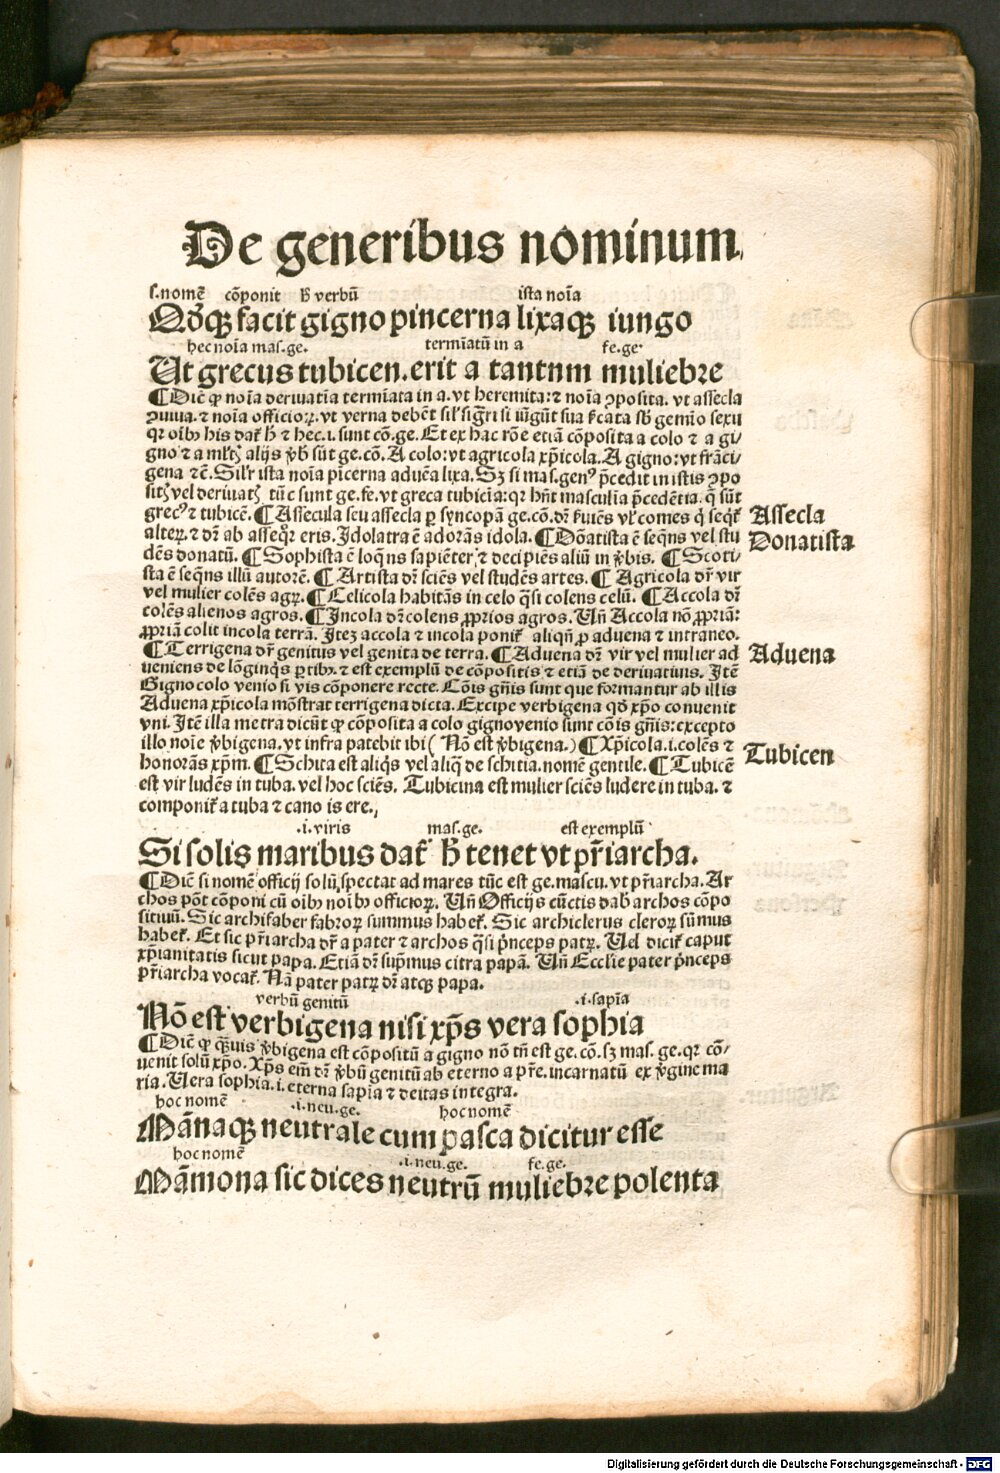 De generibus nominum
s.nomē cōponit h̄ verbū ista noīa
Qd̄q₃ facit gigno pincerna lixaq₃ iungo
hec noīa mas.ge. termīatū in a fe.ge.
Ut grecus tubicen.erit a tantnm muliebre
¶Dic̄ ꝙ noīa deriuatīa termīata in a.vt heremita:⁊ noīa ꝯposita. vt assecla
ꝯuiua.⁊ noīa officioꝝ.vt verna debēt
his
sunt cō.ge. Et ex hac rōe etiā cōposita a colo ⁊ a gi/
gno ⁊ a
sūt ge.cō. A colo:vt agricola xp̄icola. A gigno:vt frāci/
gena ⁊c̄. Sil'r ista noīa pīcerna aduēa lixa. Sz si mas.
p̄cedit in istis ꝯpo
vel
tūc sunt ge.fe.vt greca tubicīa:
masculīa p̄cedētia.
sūt
⁊ tubicē. ¶Assecula seu assecla ꝑ syncopā ge.cō.
comes
⁊ dr̄ ab
eris. Idolatra ē adorās idola. ¶Donatista ē seqn̄s vel stu
dēs donatū. ¶Sophista ē loqn̄s sapiēter ⁊ decipiēs aliū in v̄bis. ¶Scoti/
sta ē seqn̄s illū autorē. ¶Artista dr̄ sciēs vel studēs artes. ¶Agricola dr̄ vir
vel mulier colēs agrꝝ. ¶Celicola habitās in celo q̄si colens celū. ¶Accola dr̄
colēs alienos agros. ¶Incola dr̄ colens ꝓprios agros. Un̄ Accola nō ꝓpriā:
ꝓpriā colit incola terrā. Itez accola ⁊ incola
aliqn̄ ꝓ aduena ⁊ intraneo.
¶Terrigena dr̄ genitus vel genita de terra. ¶Aduena dr̄ vir vel mulier ad
ueniens de
⁊ est exemplū de cōpositis ⁊ etiā de deriuatiuis. Itē
Gigno colo venio si vis cōponere recte. Cōis gn̄is sunt que formantur ab illis
Aduena xp̄icola mōstrat terrigena dicta. Excipe verbigena qd̄ xp̄o conuenit
vni. Itē illa metra dicūt ꝙ cōposita a colo gigno venio sunt cōis gn̄is: excepto
illo noīe v̄bigena.vt infra patebit ibi (Nō est v̄bigena.) ¶Xp̄icola.i.colēs ⁊
honorās xp̄m. ¶Schita est aliq̄s vel aliq̄ de schitia.nomē gentile. ¶Tubicē
est vir ludēs in tuba.vel hoc sciēs. Tubicina est mulier sciēs ludere in tuba.⁊
a tuba ⁊ cano is ere.
Assecla
Donatista
Aduena
Tubicen
.i.viris mas.ge. est exemplū
Si solis maribus dat̄ h̄ tenet vt pr̄iarcha.
¶Dic̄ si nomē officij solū spectat ad mares tūc est ge.mascu.vt pr̄iarcha. Ar
chos pōt cōponi cū oībꝰ noībꝰ officioꝝ. Un̄ Officijs cūctis dab̄ archos cōpo
situū. Sic archifaber fabroꝝ summus habet̄. Sic archiclerus cleroꝝ sūmus
habet̄. Et sic pr̄iarcha dr̄ a pater ⁊ archos q̄si p̄nceps patꝝ. Uel dicit̄ caput
xp̄ianitatis sicut papa. Etiā dr̄ sup̄mus citra papā. Un̄ Ecclīe pater p̄nceps
pr̄iarcha vocat̄. Nā pater patꝝ dr̄ atq₃ papa.
verbū genitū .i.sapīa
Nō est verbigena nisi xp̄s vera sophia
¶Dic̄ ꝙ q̄uis v̄bigena est cōpositū a gigno nō tn̄ est ge.cō.sz mas.ge.qꝛ cō/
uenit solū xp̄o. Xp̄s em̄ dr̄ v̄bū genitū ab eterno a pr̄e.incarnatū ex v̄gine ma
ria. Uera sophia.i.eterna sapīa ⁊ deitas integra.
hoc nomē .i.neu.ge. hoc nomē
Māna q₃ neutrale cum pasca dicitur esse
hoc nomē .i.neu.ge. fe.ge.
Māmona sic dices neutrū muliebre polenta
Digitalisierung gefördert durch die Deutsche Forschungsgemeinschaft - DFG